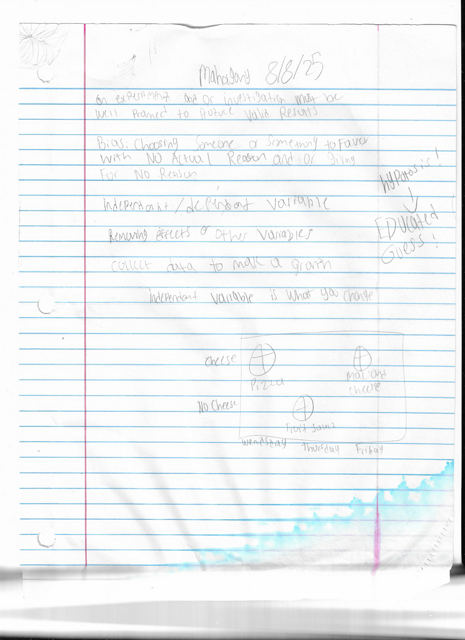 Mahogany 8/8/25
An experiment and or investigation must be
well Planned to Produce Valid Results
Bias: Choosing Someone or Something to Favor
With NO Actual Reason and or Siding
For NO Reason
Independent / dependent Variable
Removing Effects of Other Variables
collect data to make a graph
Independent Variable is What you Change
hypotosis!
↓
EDUcated
Guess!
Cheese
Pizza
Mac and
Cheese
No Cheese
Fruit
Wednesday Thursday Friday